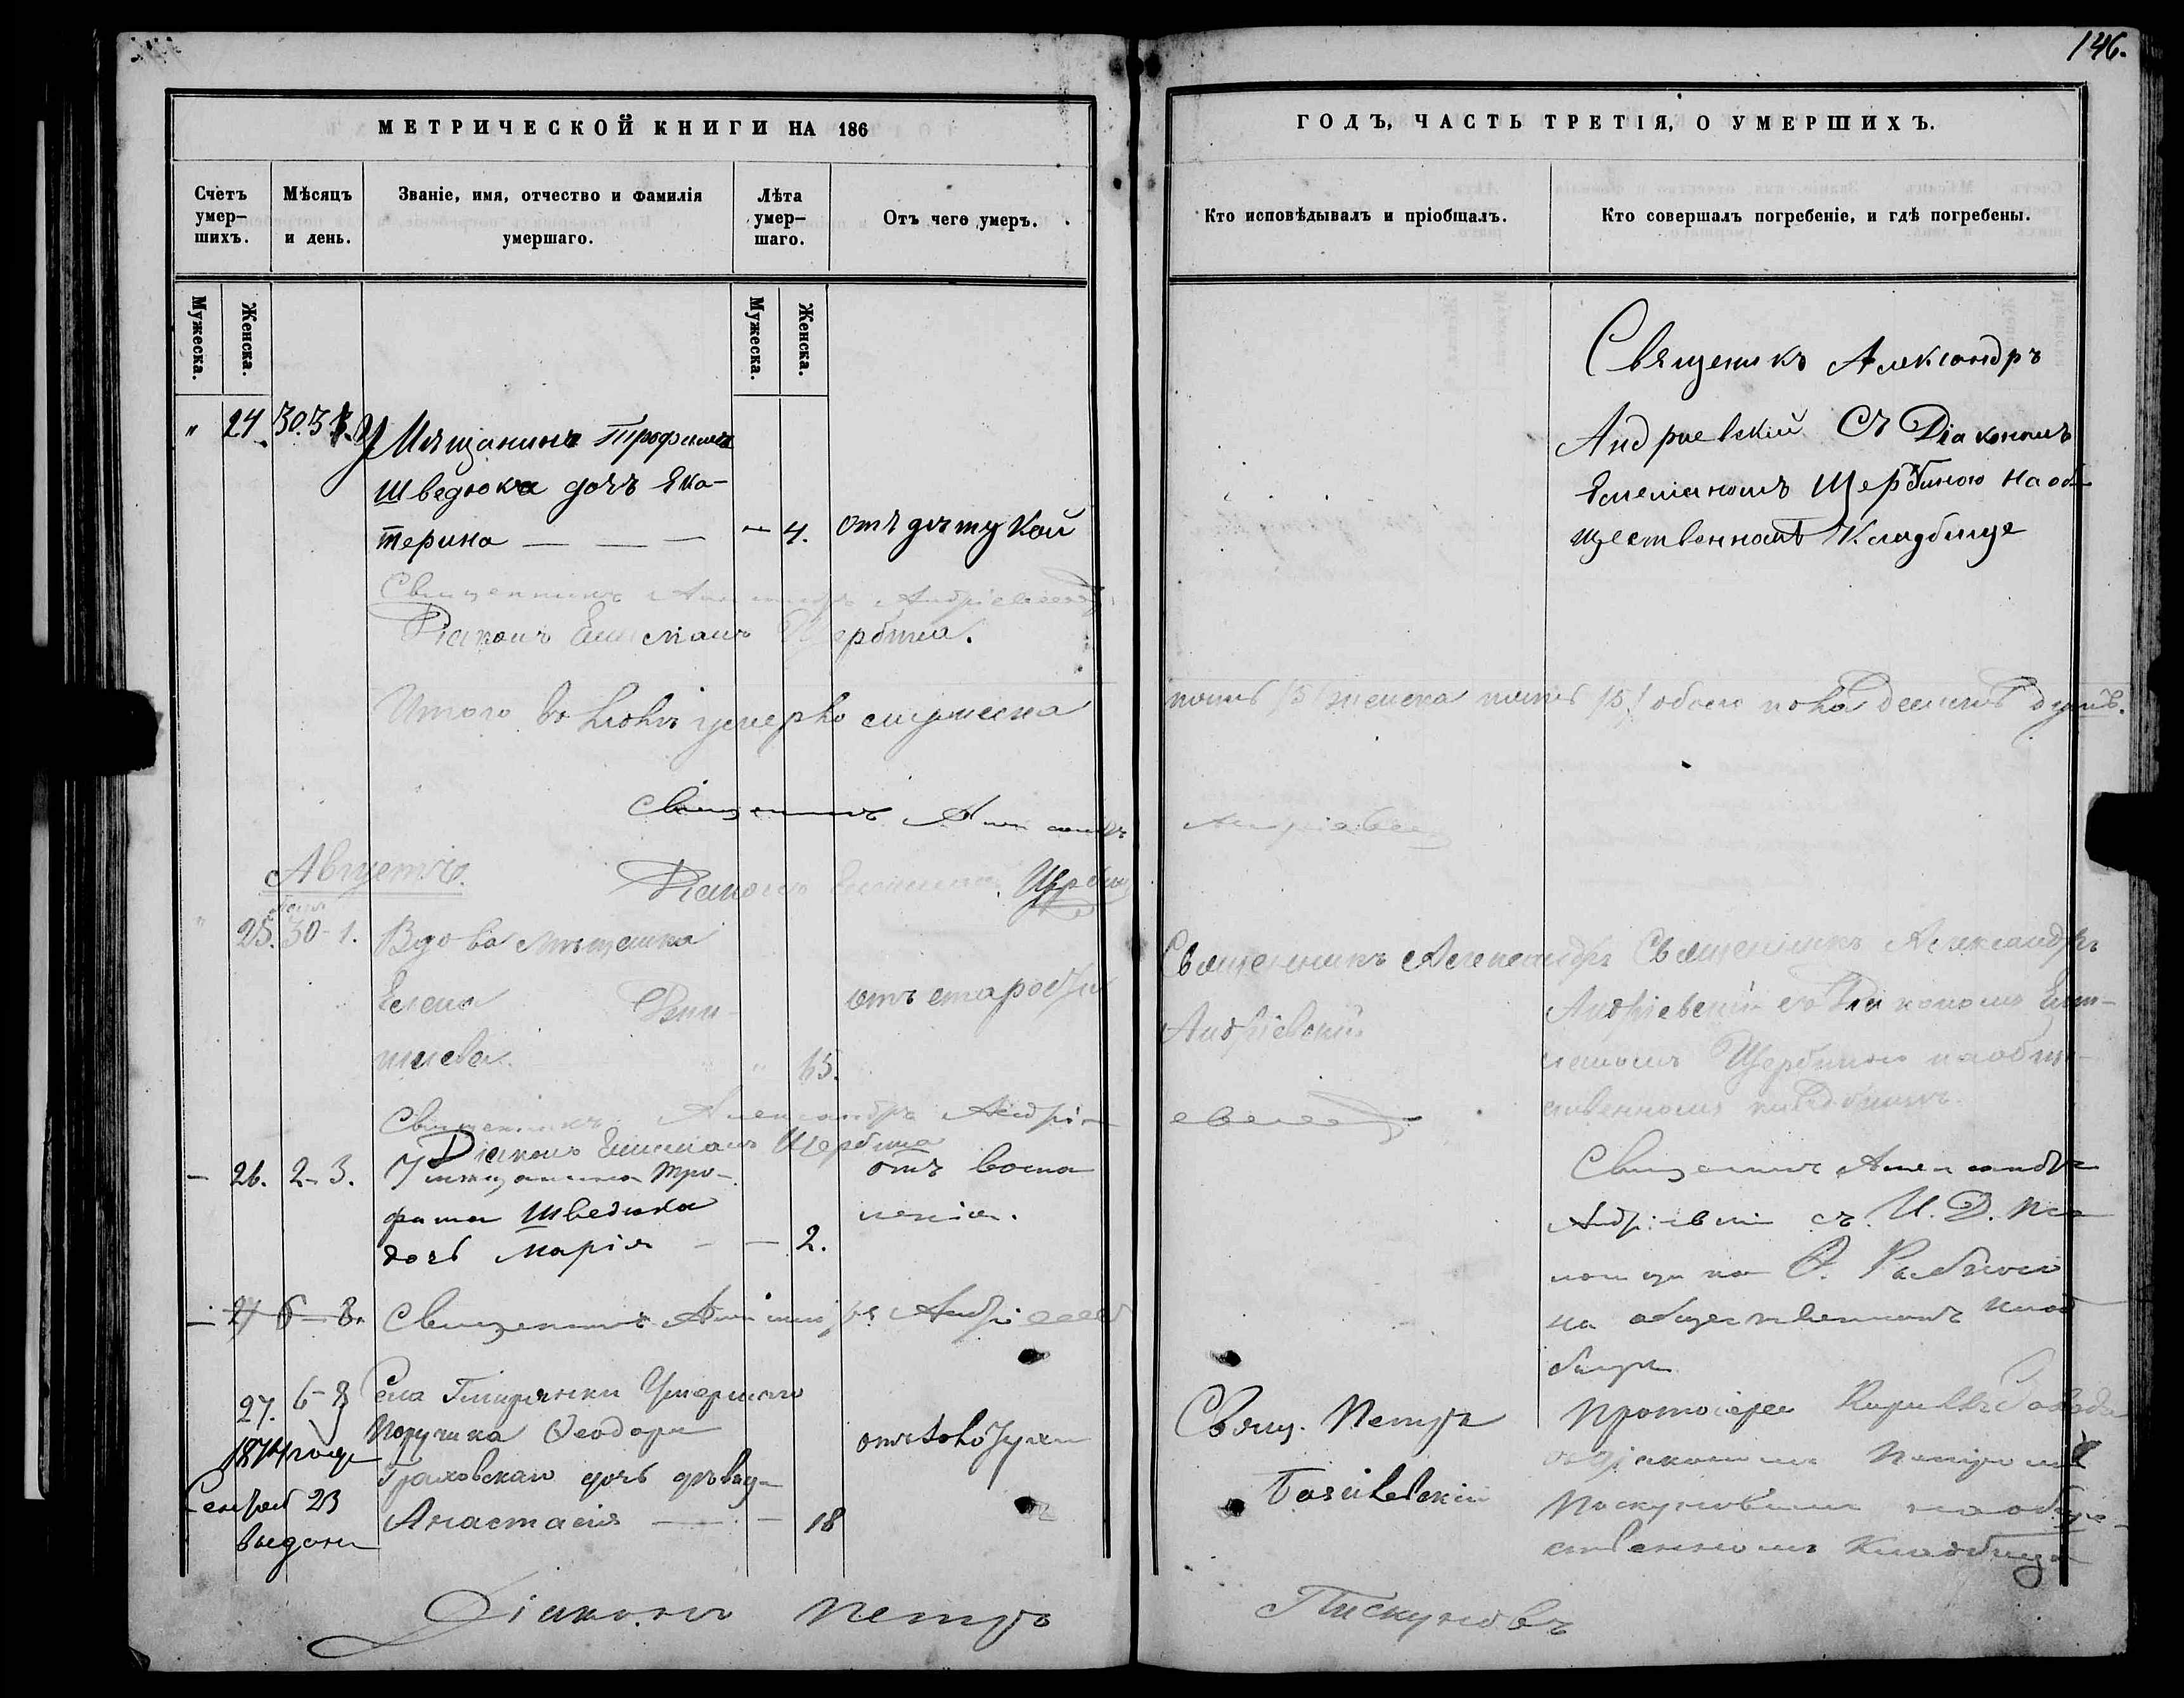 146.
МЕТРИЧЕСКОЙ КНИГИ НА 186
ГОДЪ, ЧАСТЬ ТРЕТІЯ, О УМЕРШИХЪ.
Счетъ умер-шихъ.
Мѣсяцъ и день.
Званіе, имя, отчество и фамилія умершаго.
Лѣта умер-шаго.
Отъ чего умеръ.
Кто исповѣдывалъ и пріобщалъ.
Кто совершалъ погребеніе, и гдѣ погребены.
Мужеска.
Женска.
Мужеска.
Женска.
" 24 30. 31. У Мѣщанина Трофима
Шведюка дочь Ека-
терина — — — — 4.
Священникъ Александръ
Андріевскій Съ Діакономъ
Емеліаномъ Щербиною на об-
щественномъ Кладбище
Священникъ Александръ Андріевскій
Діаконъ Емеліанъ Щербина.
Итого въ Іюлѣ умерло мужеска
пять /5/ женска пять /5/ обоего пола десять душъ.
Священникъ Александръ
Андріевскій
Августъ.
Діаконъ Емеліанъ Щербина
25. 30-1. Вдова мѣщанка
Елена
" 65.
отъ старости
Священникъ Александръ
Андріевскій
Священникъ Александръ
Андріевскій съ Діакономъ Еми-
ліаномъ Щербиною на обще-
ственномъ кладбищѣ.
Священникъ Александръ Андрі-
евскій
Діаконъ Емиліанъ Щербина
— 26. 2-3. У мѣщанина Тро-
фима Шведюка
дочь Марія — — 2.
отъ воспа
ленія.
Священникъ Александръ
Андріевскій съ И. Д. Пса
ломщика Ѳ.
на общественномъ клад
бищѣ
— 27 6-8. Священникъ Александръ Андріевскій
27. 6-8 Села Умершаго
Поручика Ѳеодора
дочь дѣвица
Анастасія — — 18
1874 года
Сентяб 23
выдана
Свящ. Петръ
Базилевскій
Протоіерей Кириллъ
съ діакономъ Петромъ
Пискуновымъ на обще-
ственномъ Кладбище
Діаконъ Петръ
Пискуновъ